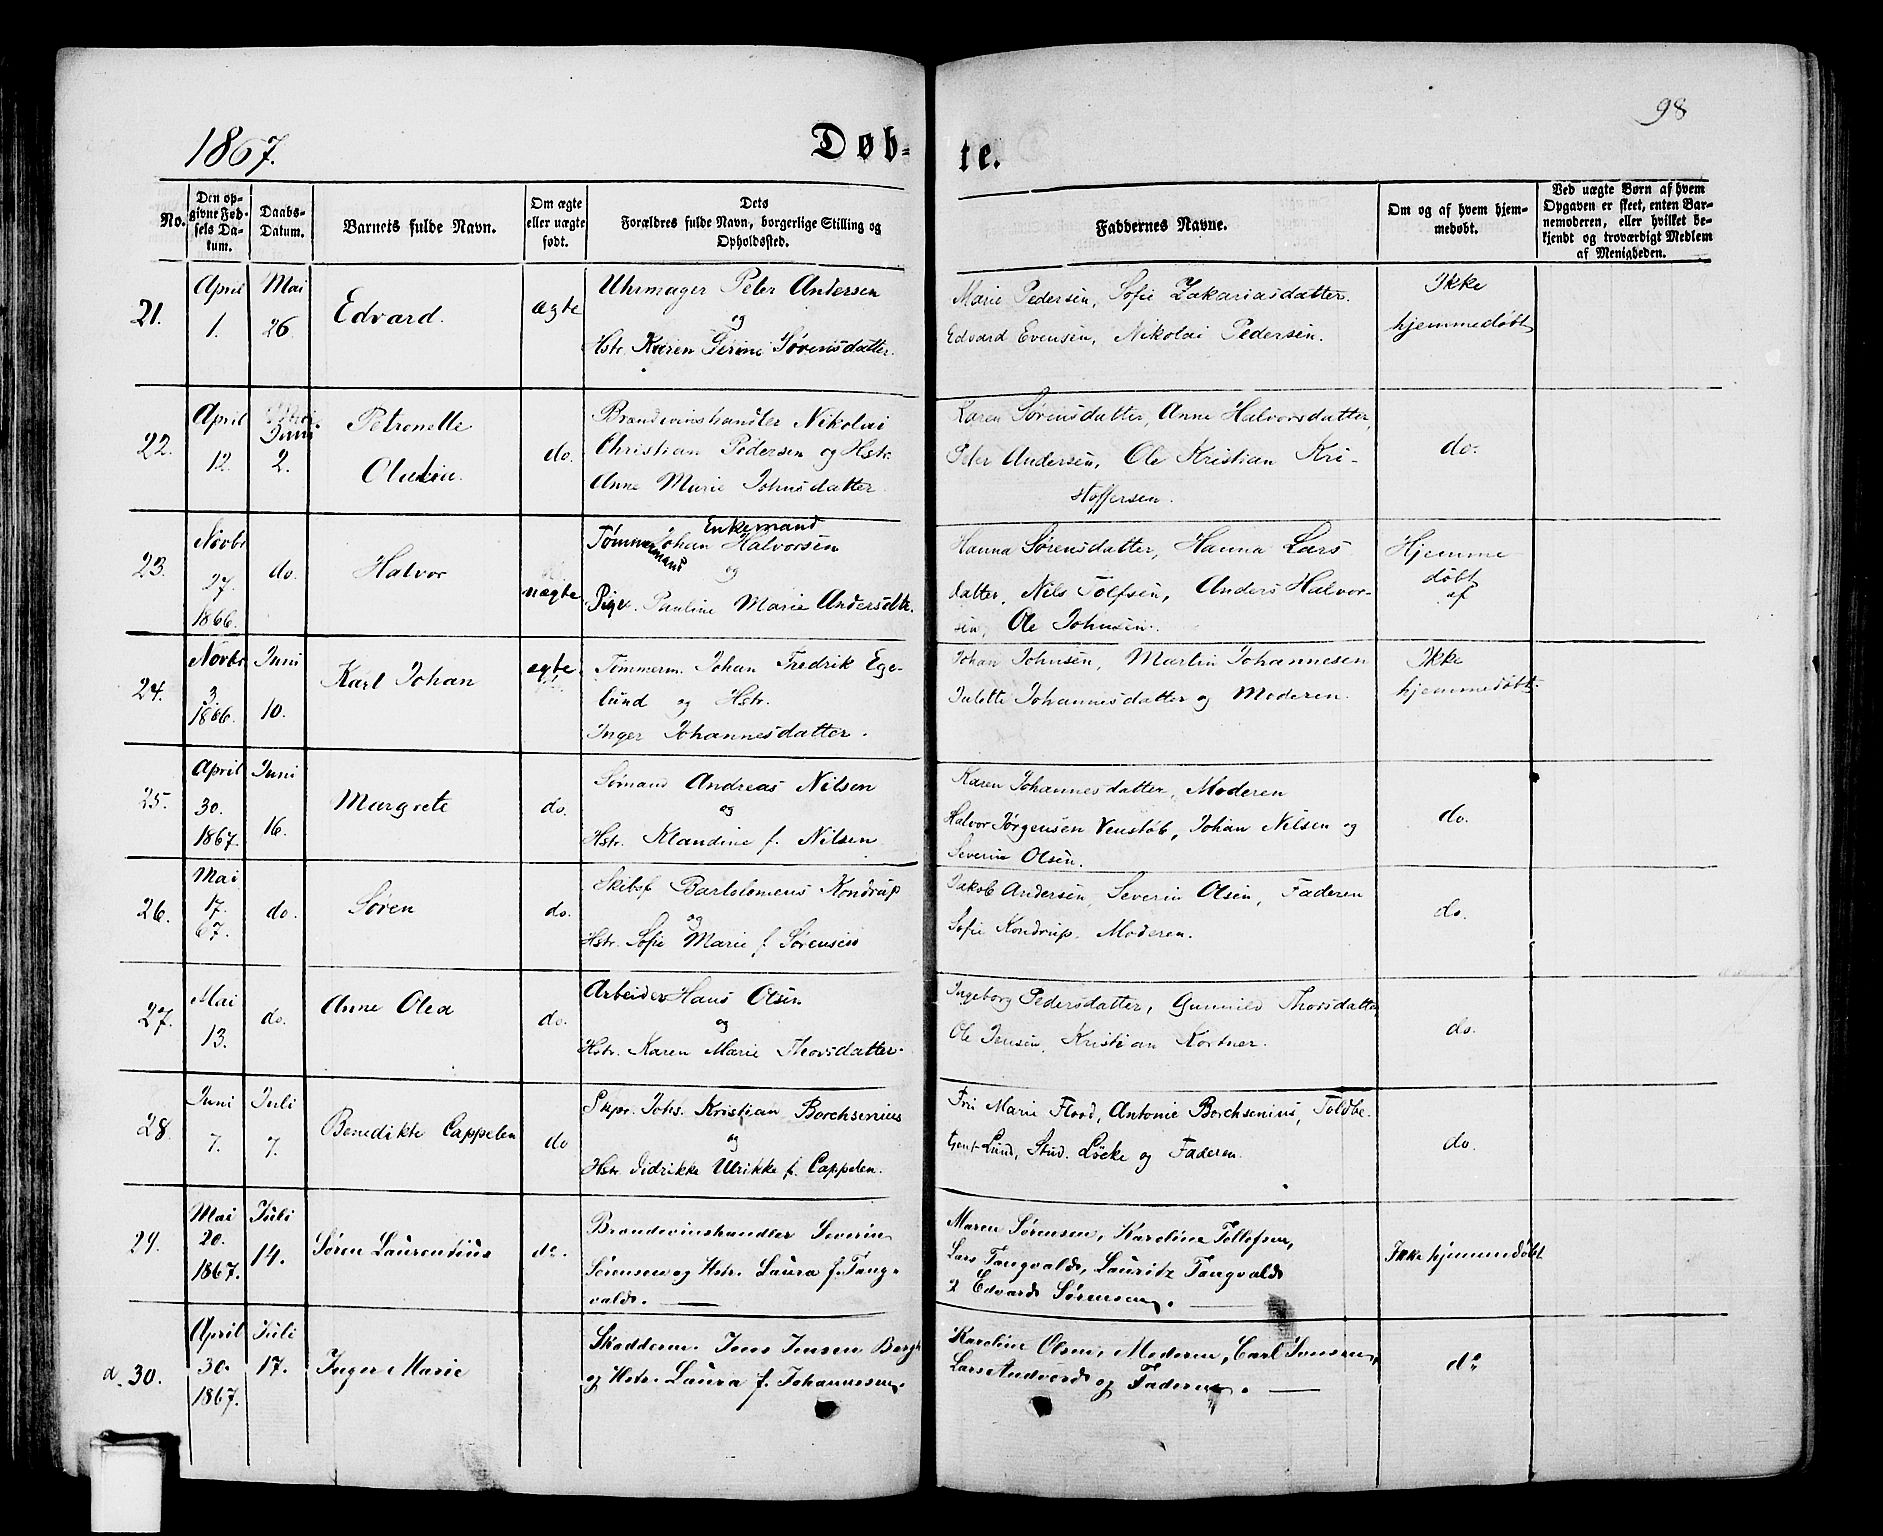 98
1867.
Døb-
te.
No.
Den op-
givne Fød-
sels Da-
tum.
Daabs-
Datum.
Barnets fulde Navn.
Om ægte
eller uægte
født.
Dets
Forældres fulde Navn, borgerlige Stilling og
Opholdssted.
Faddernes Navne.
Om og af hvem hjem-
medøbt.
Ved uægte Børn af hvem
Opgaven er skeet, enten Bar-
nemoderen, eller hvilket be-
kjendt og troværdigt Medlem
af Menigheden.
21.
April
1.
Mai
26
Edvard.
ægte
Uhrmager Peter Andersen
og
Hstr. Karen Serine Sørensdatter.
Marie Pedersen, Sofie Zakariasdatter.
Edvard Evensen, Nikolai Pedersen.
Ikke
hjemmedøbt
22.
April
12.
Juni
2.
Petronelle
Oludia.
do.
Brændevinshandler Nikolai
Christian Pedersen og Hstr.
Anne Marie Johnsdatter.
Karen Sørensdatter, Anne Halvorsdatter,
Peter Andersen, Ole Kristian Kri-
stoffersen.
do.
23.
Novbr
27.
1866.
do.
Halvor
uægte
Enkemand
Tømmermand Johan Halvorsen
og
Pige. Pauline Marie Andersdtr.
Hanna Sørensdatter, Hanna Lars
datter, Nils Tolfsen, Anders Halvor-
sen, Ole Johnsen.
Hjemme
døbt
af
24.
Novbr
3.
1866.
Juni
10.
Karl Johan
ægte
Tømmerm. Johan Fredrik Ege-
lund og Hstr.
Inger Johannesdatter.
Johan Johnsen, Martin Johannesen
Julette Johannesdatter og Moderen.
Ikke
hjemmedøbt.
25.
April
30.
1867.
Juni
16.
Margrete
do.
Sømand Andreas Nilsen
og
Hstr. Klandine f. Nilsen
Karen Johannesdatter, Moderen
Halvor Jørgensen Venstøb, Johan Nilsen og
Severin Olsen.
do.
26.
Mai
17.
67.
do.
Søren
do.
Skibsf. Bartolomeus Kondrup
og
Hstr. Sofie Marie f. Sørensen
Jakob Andersen, Severin Olsen, Faderen
Sofie Kondrup. Moderen.
do.
27.
Mai
13.
do.
Anne Olea
do.
Arbeider Hans Olsen
og
Hstr. Karen Marie Thorsdatter.
Ingeborg Pedersdatter, Gunnild Thorsdatter,
Ole Jensen, Kristian Kortner.
do.
28.
Juni
7.
Juli
7.
Benedikte Cappelen
do
Skpr. Johs. Kristian Borchsenius
og
Hstr. Didrikke Ulrikke f. Cappelen.
Fru Marie Flood, Antonie Borchsenius, Toldbe-
tjent Lund, Stud. Løcke og Faderen.
do.
29.
Mai
20.
1867.
Juli
14.
Søren Laurentius
do.
Brændevinshandler Severin
Sørensen og Hstr. Laura f. Tang-
valds.
Maren Sørensen, Karoline Tollofsen,
Lars Tangvalds, Lauritz Tangvalds
& Edvards Sørensen.
Ikke hjemmedøbt
d. 30.
April
30.
1867.
Juli
17.
Inger Marie
Skædderm. Jens Jensen Bergh
og Hstr. Laura f. Johannesen.
Karoline Olsen, Moderen, Carl Jensen,
Lars Andvord og Faderen.
do